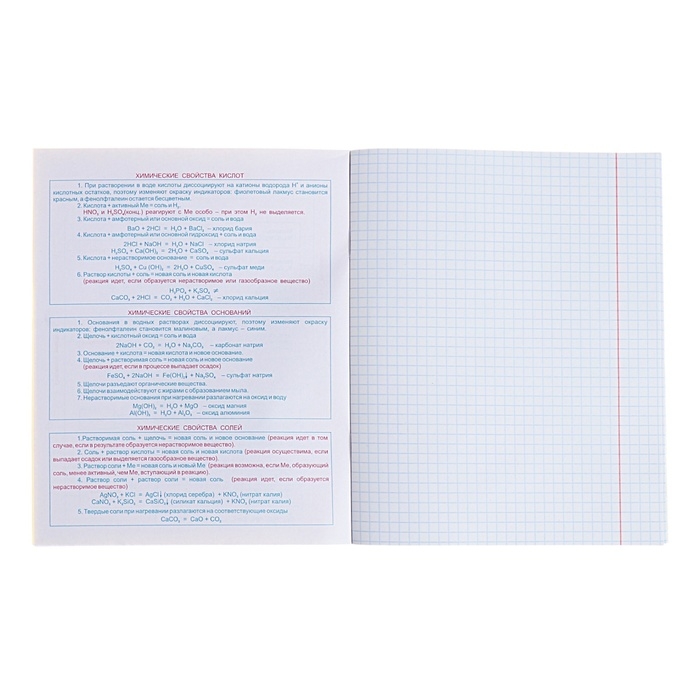 ХИМИЧЕСКИЕ СВОЙСТВА КИСЛОТ
1. При растворении в воде кислоты диссоциируют на катионы водорода H⁺ и анионы
кислотных остатков, поэтому изменяют окраску индикаторов: фиолетовый лакмус становится
красным, а фенолфталеин остается бесцветным.
2. Кислота + активный Ме = соль и H₂
HNO₃ и H₂SO₄(конц.) реагируют с Ме особо – при этом H₂ не выделяется.
3. Кислота + амфотерный или основной оксид = соль и вода
BaO + 2HCl = H₂O + BaCl₂ – хлорид бария
4. Кислота + амфотерный или основной гидроксид + соль и вода
2HCl + NaOH = H₂O + NaCl – хлорид натрия
H₂SO₄ + Ca(OH)₂ = 2H₂O + CaSO₄ – сульфат кальция
5. Кислота + нерастворимое основание = соль и вода
H₂SO₄ + Cu (OH)₂ = 2H₂O + CuSO₄ – сульфат меди
6. Раствор кислоты + соль = новая соль и новая кислота
(реакция идет, если образуется нерастворимое или газообразное вещество)
H₃PO₄ + K₂SO₄ ≠
CaCO₃ + 2HCl = CO₂ + H₂O + CaCl₂ – хлорид кальция
ХИМИЧЕСКИЕ СВОЙСТВА ОСНОВАНИЙ
1. Основания в водных растворах диссоциируют, поэтому изменяют окраску
индикаторов: фенолфталеин становится малиновым, а лакмус – синим.
2. Щелочь + кислотный оксид = соль и вода
2NaOH + CO₂ = H₂O + Na₂CO₃ – карбонат натрия
3. Основание + кислота = новая кислота и новое основание.
4. Щелочь + растворимая соль = новая соль и новое основание
(реакция идет, если в процессе выпадает осадок)
FeSO₄ + 2NaOH = Fe(OH)₂↓ + Na₂SO₄ – сульфат натрия
5. Щелочи разъедают органические вещества.
6. Щелочи взаимодействуют с жирами с образованием мыла.
7. Нерастворимые основания при нагревании разлагаются на оксид и воду
Mg(OH)₂ = H₂O + MgO – оксид магния
Al(OH)₃ = H₂O + Al₂O₃ – оксид алюминия
ХИМИЧЕСКИЕ СВОЙСТВА СОЛЕЙ
1.Растворимая соль + щелочь = новая соль и новое основание (реакция идет в том
случае, если в результате образуется нерастворимое вещество).
2. Соль + раствор кислоты = новая соль и новая кислота (реакция осуществима, если
выпадает осадок или выделяется газообразное вещество).
3. Раствор соли + Ме = новая соль и новый Ме (реакция возможна, если Ме, образующий
соль, менее активный, чем Ме, вступающий в реакцию).
4. Раствор соли + раствор соли = новая соль (реакция идет, если образуется
нерастворимое вещество)
AgNO₃ + KCl = AgCl↓ (хлорид серебра) + KNO₃ (нитрат калия)
CaNO₃ + K₂SiO₃ = CaSiO₃↓ (силикат кальция) + KNO₃ (нитрат калия)
5. Твердые соли при нагревании разлагаются на соответствующие оксиды
CaCO₃ = CaO + CO₂